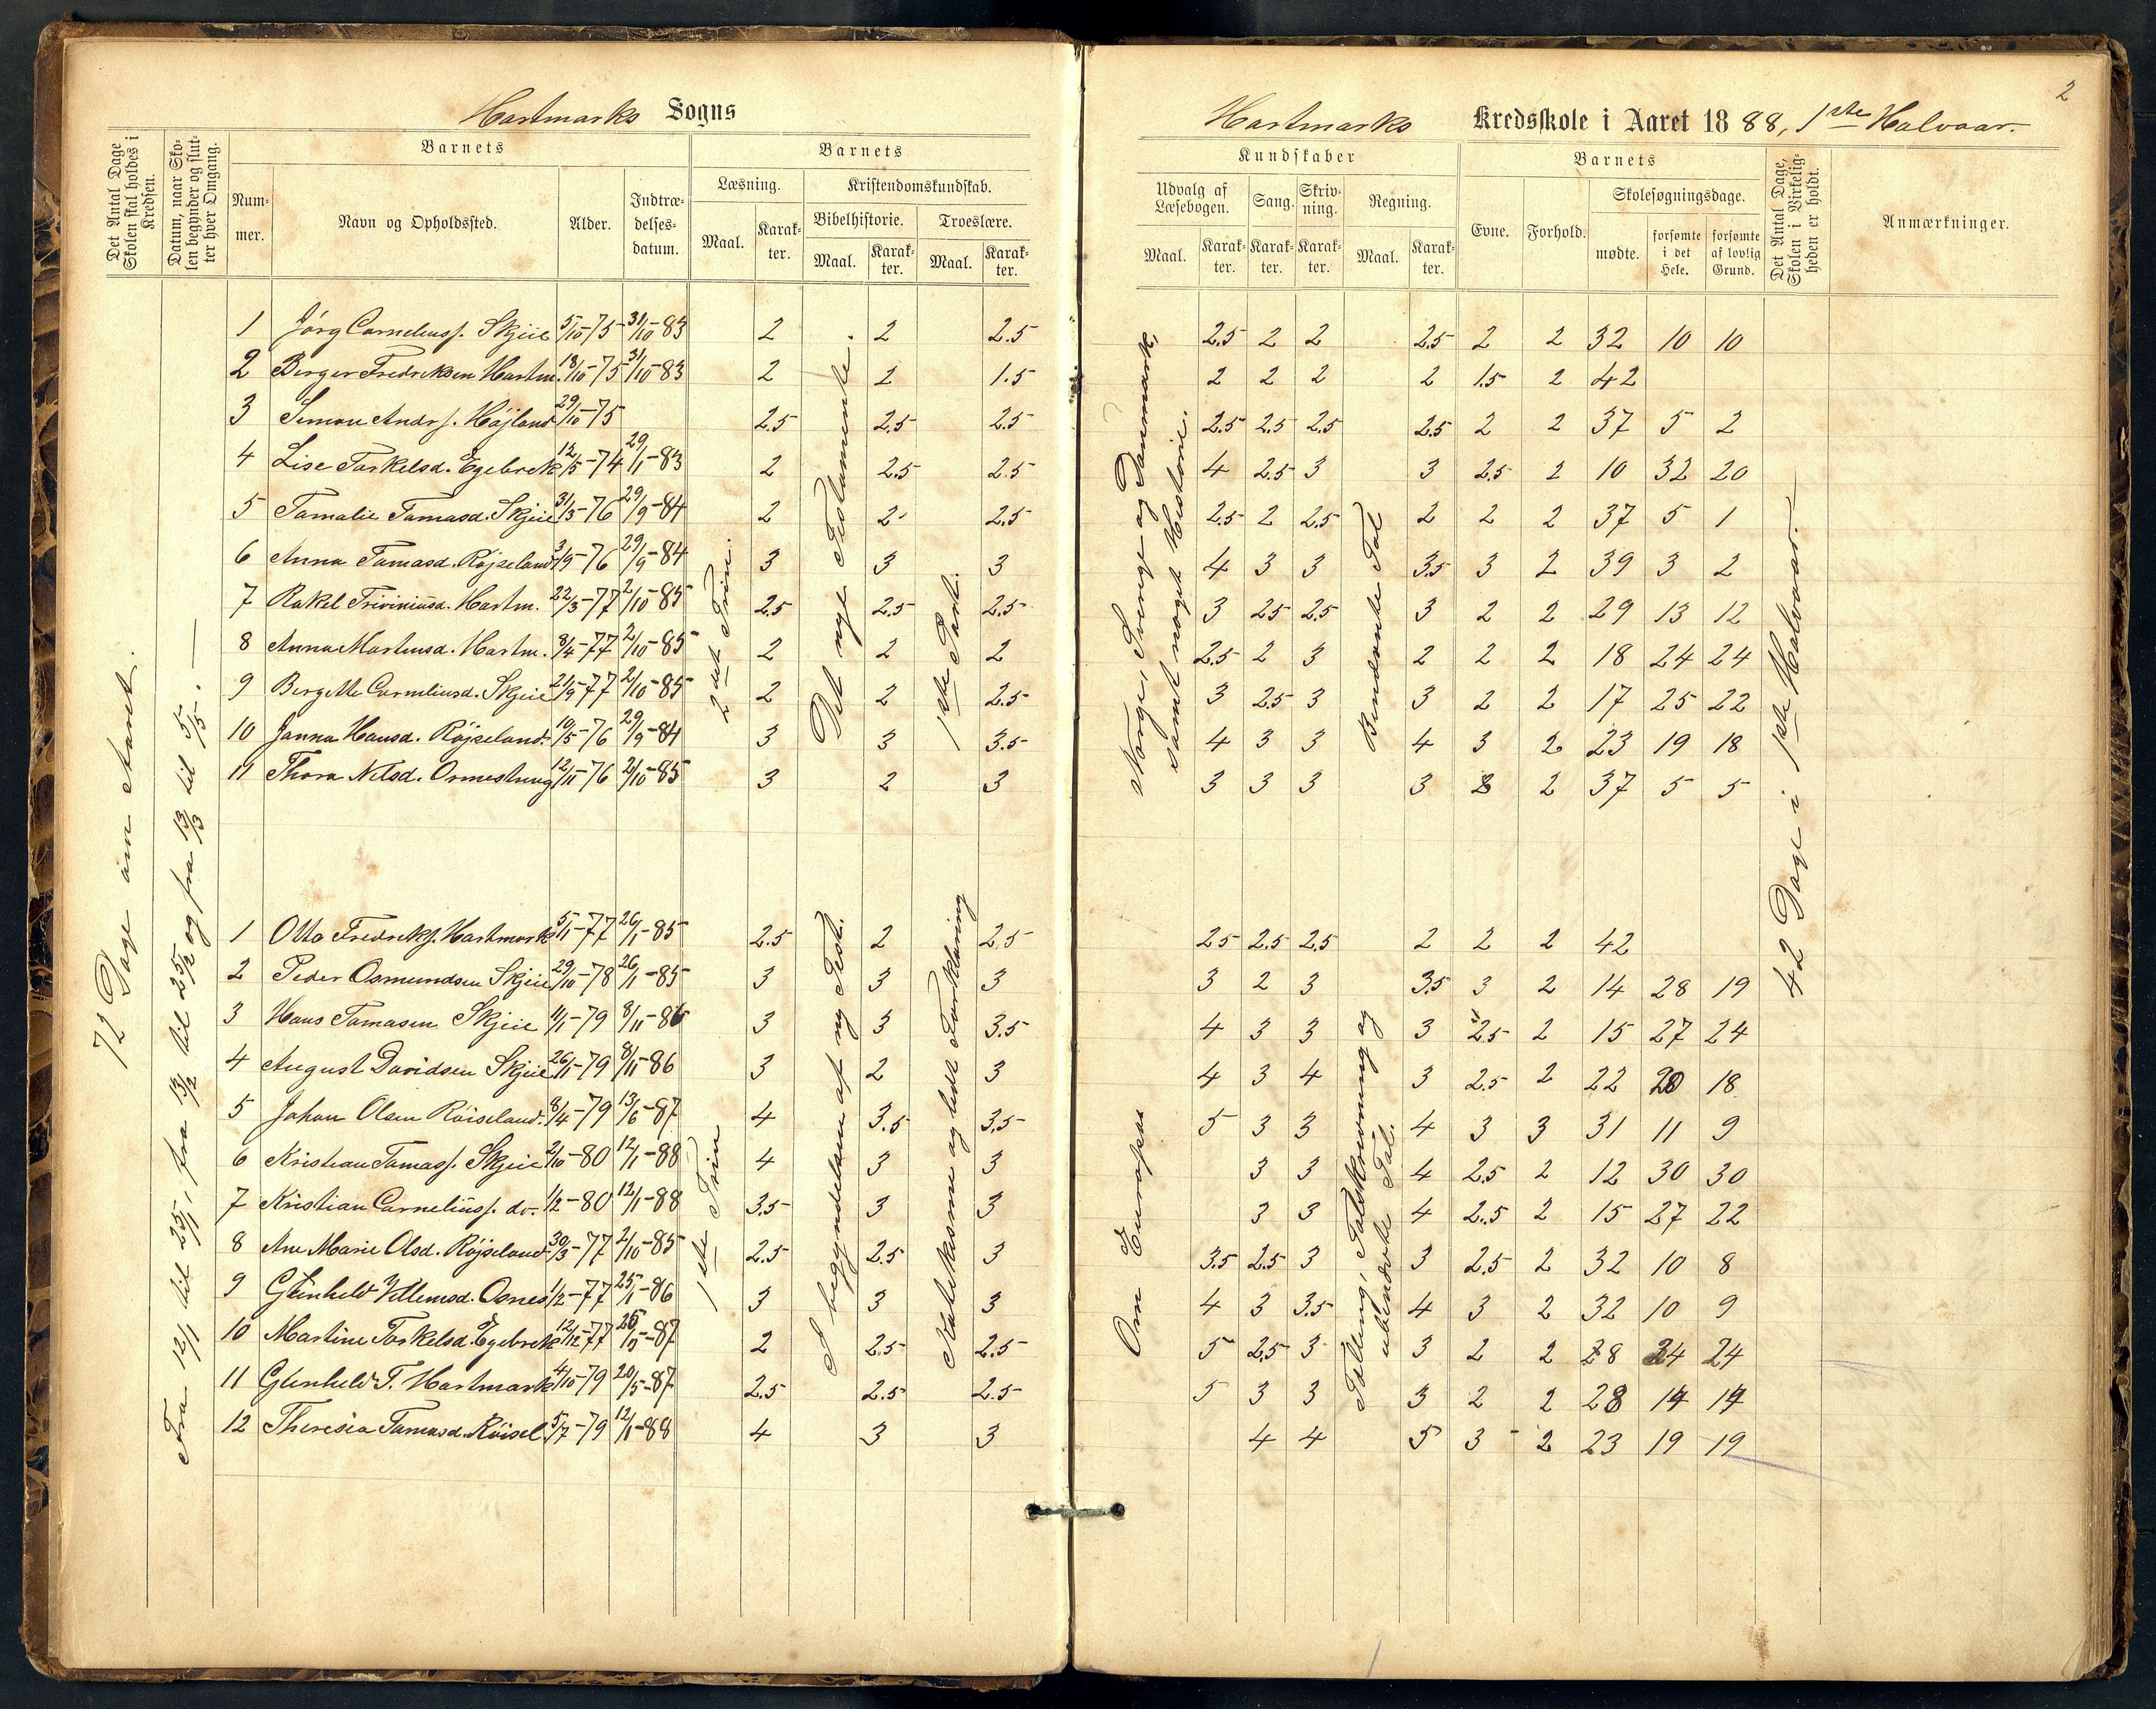 2
Hartmarks Sogns
Hartmarks Kredsskole i Aaret 1888, 1ste Halvaar.
Det Antal Dage Skolen skal holdes i Kredsen.
Datum, naar Skolen begynder og slutter hver Omgang.
Barnets
Nummer.
Navn og Opholdssted.
Alder.
Indtrædelsesdatum.
Barnets
Læsning.
Maal.
Karakter.
Kristendomskundskab.
Bibelhistorie.
Maal.
Karakter.
Troeslære.
Maal.
Karakter.
Kundskaber
Udvalg af Læsebogen.
Maal.
Karakter.
Sang.
Karakter.
Skrivning.
Karakter.
Regning.
Maal.
Karakter.
Barnets
Evne.
Forhold.
Skolesøgningsdage.
mødte.
forsømte i det Hele.
forsømte af lovlig Grund.
Det Antal Dage, Skolen i Virkeligheden er holdt.
Anmærkninger.
72 Dage om Aaret.
Fra 12/1 til 25/1, fra 13/2 til 25/2 og fra 13/3 til 5/5.
2det Trin.
Det nye Testamente.
1ste Part.
Norge, Sverige og Danmark, samt noget Historie.
Benævnte Tal
42 Dage i 1ste Halvaar.
1 Jörg Corneliuss. Skjeie 5/10-75 31/10-83 2 2 2.5 2.5 2 2 2.5 2 2 32 10 10
2 Berger Fredriksen Hartm. 18/10-75 31/10-83 2 2 1.5 2 2 2 2 1.5 2 42
3 Simon Andrs. Höjland 29/10-75 2.5 2.5 2.5 2.5 2.5 2.5 2.5 2 2 37 5 2
4 Lise Torkelsd. Egebrek 12/5-74 29/1-83 2 2.5 2.5 4 2.5 3 3 2.5 2 10 32 20
5 Tomalie Tomasd. Skjeie 31/3-76 29/9-84 2 2 2.5 2.5 2 2.5 2 2 2 37 5 1
6 Anna Tomasd. Röjseland 3/9-76 29/9-84 3 3 3 4 3 3 3.5 3 2 39 3 2
7 Rakel Triviniusd. Hartm. 22/3-77 2/10-85 2.5 2.5 2.5 3 2.5 2.5 3 2 2 29 13 12
8 Anna Martinsd. Hartm. 8/4-77 2/10-85 2 2 2 2.5 2 3 2 2 2 18 24 24
9 Bergitte Corneliusd. Skjeie 21/9-77 2/10-85 2 2 2.5 3 2.5 3 3 2 2 17 25 22
10 Janna Hansd. Röjseland. 10/5-76 29/9-84 3 3 3.5 4 3 3 4 3 2 23 19 18
11 Thora Nilsd. Ormestrung 12/11-76 2/10-85 3 2 3 3 3 3 3 2 37 5 5
1ste Trin
I begyndelsen af ny Test.
Katekisme og lidt Forklaring
Om Europa
Tælling, Talskrivning og ubenævnte Tal.
1 Otto Fredriks. Hartmark 5/1-77 26/1-85 2.5 2 2.5 2.5 2.5 2.5 2 2 2 42
2 Peder Osmundsen Skjeie 29/10-78 26/1-85 3 3 3 3 2 3 3.5 3 2 14 28 19
3 Hans Tomasen Skjeie 11/1-79 8/11-86 3 3 3.5 4 3 3 3 2.5 2 15 27 24
4 August Davidsen Skjeie 26/1-79 8/11-86 3 2 3 4 3 4 3 2.5 2 22 20 18
5 Johan Olsen Röiseland. 8/4-79 13/6-87 4 3.5 3.5 5 3 3 4 3 3 31 11 9
6 Kristian Tomass. Skjeie 2/10-80 12/1-88 4 3 3 3 3 4 2.5 2 12 30 30
7 Kristian Corneliuss. do. 1/2-80 12/1-88 3.5 3 3 3 3 4 2.5 2 15 27 22
8 Ane Marie Olsd. Röjseland 30/3-77 2/10-85 2.5 2.5 3 3.5 2.5 3 3 2.5 2 32 10 8
9 Gunheld Villemsd. Osnes 1/2-77 25/1-86 3 3 3 4 3 3.5 4 3 2 32 10 9
10 Martine Torkelsd. Egebrek 12/12-77 -87 2 2.5 2.5 5 2.5 3 3 2 2 28 24
11 Gunheld T. Hartmark 4/10-79 20/5-87 2.5 2.5 2.5 5 3 3 3 2 2 28 14 14
12 Theresia Tomasd. Röisel. 5/7-79 12/1-88 4 3 3 4 4 5 3 2 23 19 19